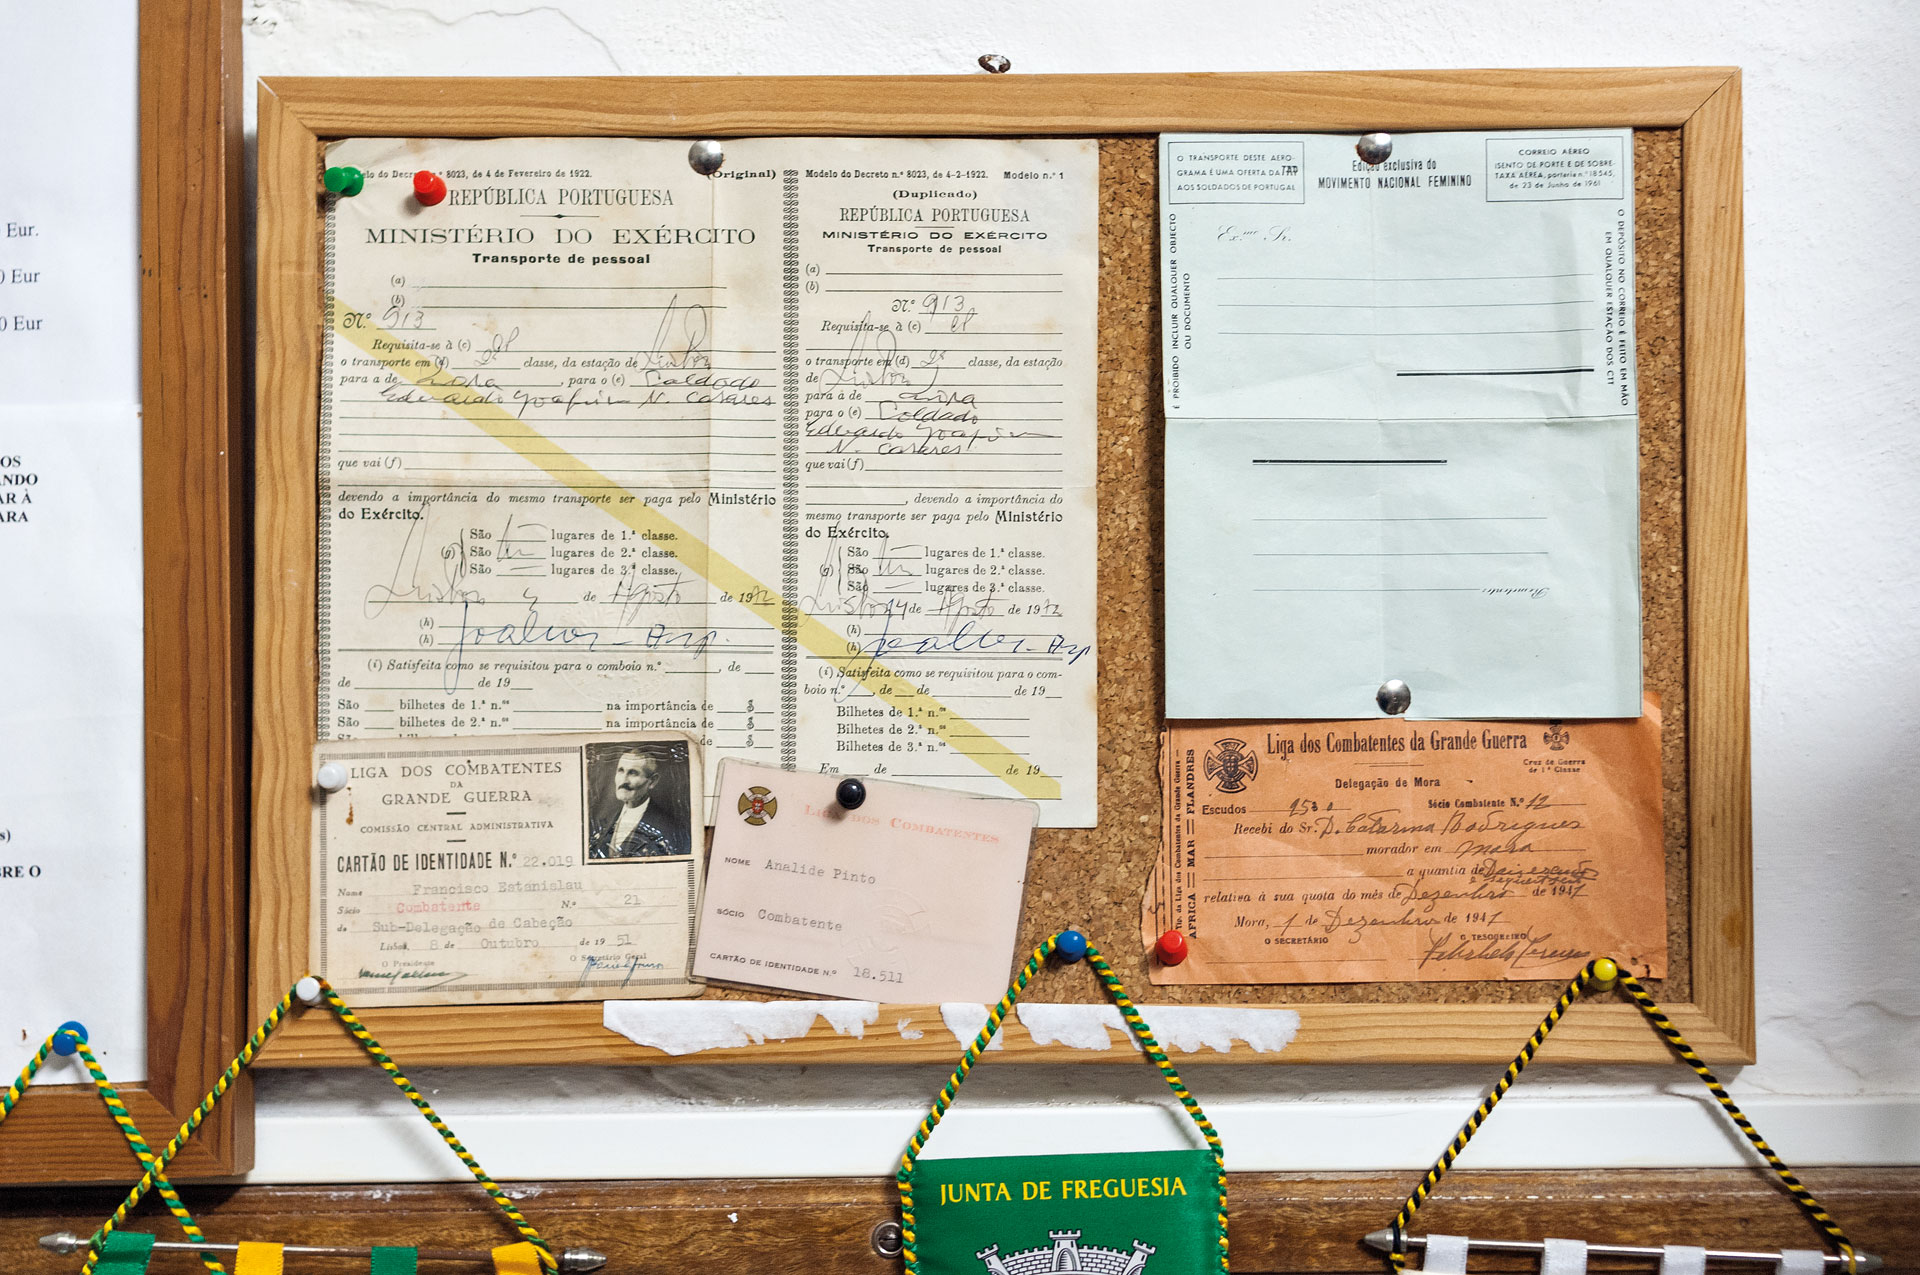 Eur.
0 Eur
0 Eur
OS
NDO
AR À
ARA
s)
BRE O
elo do Decreto n.º 8023, de 4 de Fevereiro de 1922. (Original)
REPÚBLICA PORTUGUESA
MINISTÉRIO DO EXÉRCITO
Transporte de pessoal
(a)
(b)
N.º 913
Requisita-se à (c) el
o transporte em (d) 2ª classe, da estação de Lisboa
para a de Mora, para o (e) Soldado
Eduardo Joaquim N. Casares
que vai (f)
devendo a importância do mesmo transporte ser paga pelo Ministério
do Exército.
São lugares de 1.ª classe.
(g) São um lugares de 2.ª classe.
São lugares de 3.ª classe.
Lisboa 4 de Agosto de 1972
(h)
(h)
(i) Satisfeita como se requisitou para o comboio n.º , de
de de 19
São bilhetes de 1.ª n.ºs na importância de $
São bilhetes de 2.ª n.ºs na importância de $
de $
Modelo do Decreto n.º 8023, de 4-2-1922. Modelo n.º 1
(Duplicado)
REPÚBLICA PORTUGUESA
MINISTÉRIO DO EXÉRCITO
Transporte de pessoal
(a)
(b)
N.º 913
Requisita-se à (c) el
o transporte em (d) 2ª classe, da estação
de Lisboa
para a de Mora
para o (e) Soldado
Eduardo Joaquim
N. Casares
que vai (f)
, devendo a importância do
mesmo transporte ser paga pelo Ministério
do Exército.
São lugares de 1.ª classe.
(g) São um lugares de 2.ª classe.
São lugares de 3.ª classe.
Lisboa 4 de Agosto de 1972
(h)
(h)
(i) Satisfeita como se requisitou para o com-
boio n.º de de de 19
Bilhetes de 1.ª n.ºs
Bilhetes de 2.ª n.ºs
Bilhetes de 3.ª n.ºs
Em de de 19
O TRANSPORTE DESTE AERO-
GRAMA É UMA OFERTA DA TAP
AOS SOLDADOS DE PORTUGAL
Edição exclusiva do
MOVIMENTO NACIONAL FEMININO
CORREIO AÉREO
ISENTO DE PORTE E DE SOBRE-
TAXA AÉREA, portaria n.º 18545,
de 23 de Junho de 1961
É PROIBIDO INCLUIR QUALQUER OBJECTO
OU DOCUMENTO
Ex.mo Sr.
O DEPÓSITO NO CORREIO É FEITO EM MÃO
EM QUALQUER ESTAÇÃO DOS CTT
Remetente:
LIGA DOS COMBATENTES
DA
GRANDE GUERRA
COMISSÃO CENTRAL ADMINISTRATIVA
CARTÃO DE IDENTIDADE N.º 22.019
Nome Francisco Estanislau
Sócio Combatente N.º 21
da Sub-Delegação de Cabeção
Lisboa, 8 de Outubro de 1951
O Presidente O Secretário Geral
LIGA DOS COMBATENTES
NOME Analide Pinto
SÓCIO Combatente
CARTÃO DE IDENTIDADE N.º 18.511
Tip. da Liga dos Combatentes da Grande Guerra
AFRICA — MAR — FLANDRES
Liga dos Combatentes da Grande Guerra
Cruz de Guerra
de 1.ª Classe
Delegação de Mora
Escudos 2$50 Sócio Combatente N.º 12
Recebi do Sr. D. Catarina Rodrigues
morador em Mora
a quantia de
relativa à sua quota do mês de Dezembro de 1941
Mora, 1 de Dezembro de 1941
O SECRETÁRIO O TESOUREIRO
JUNTA DE FREGUESIA